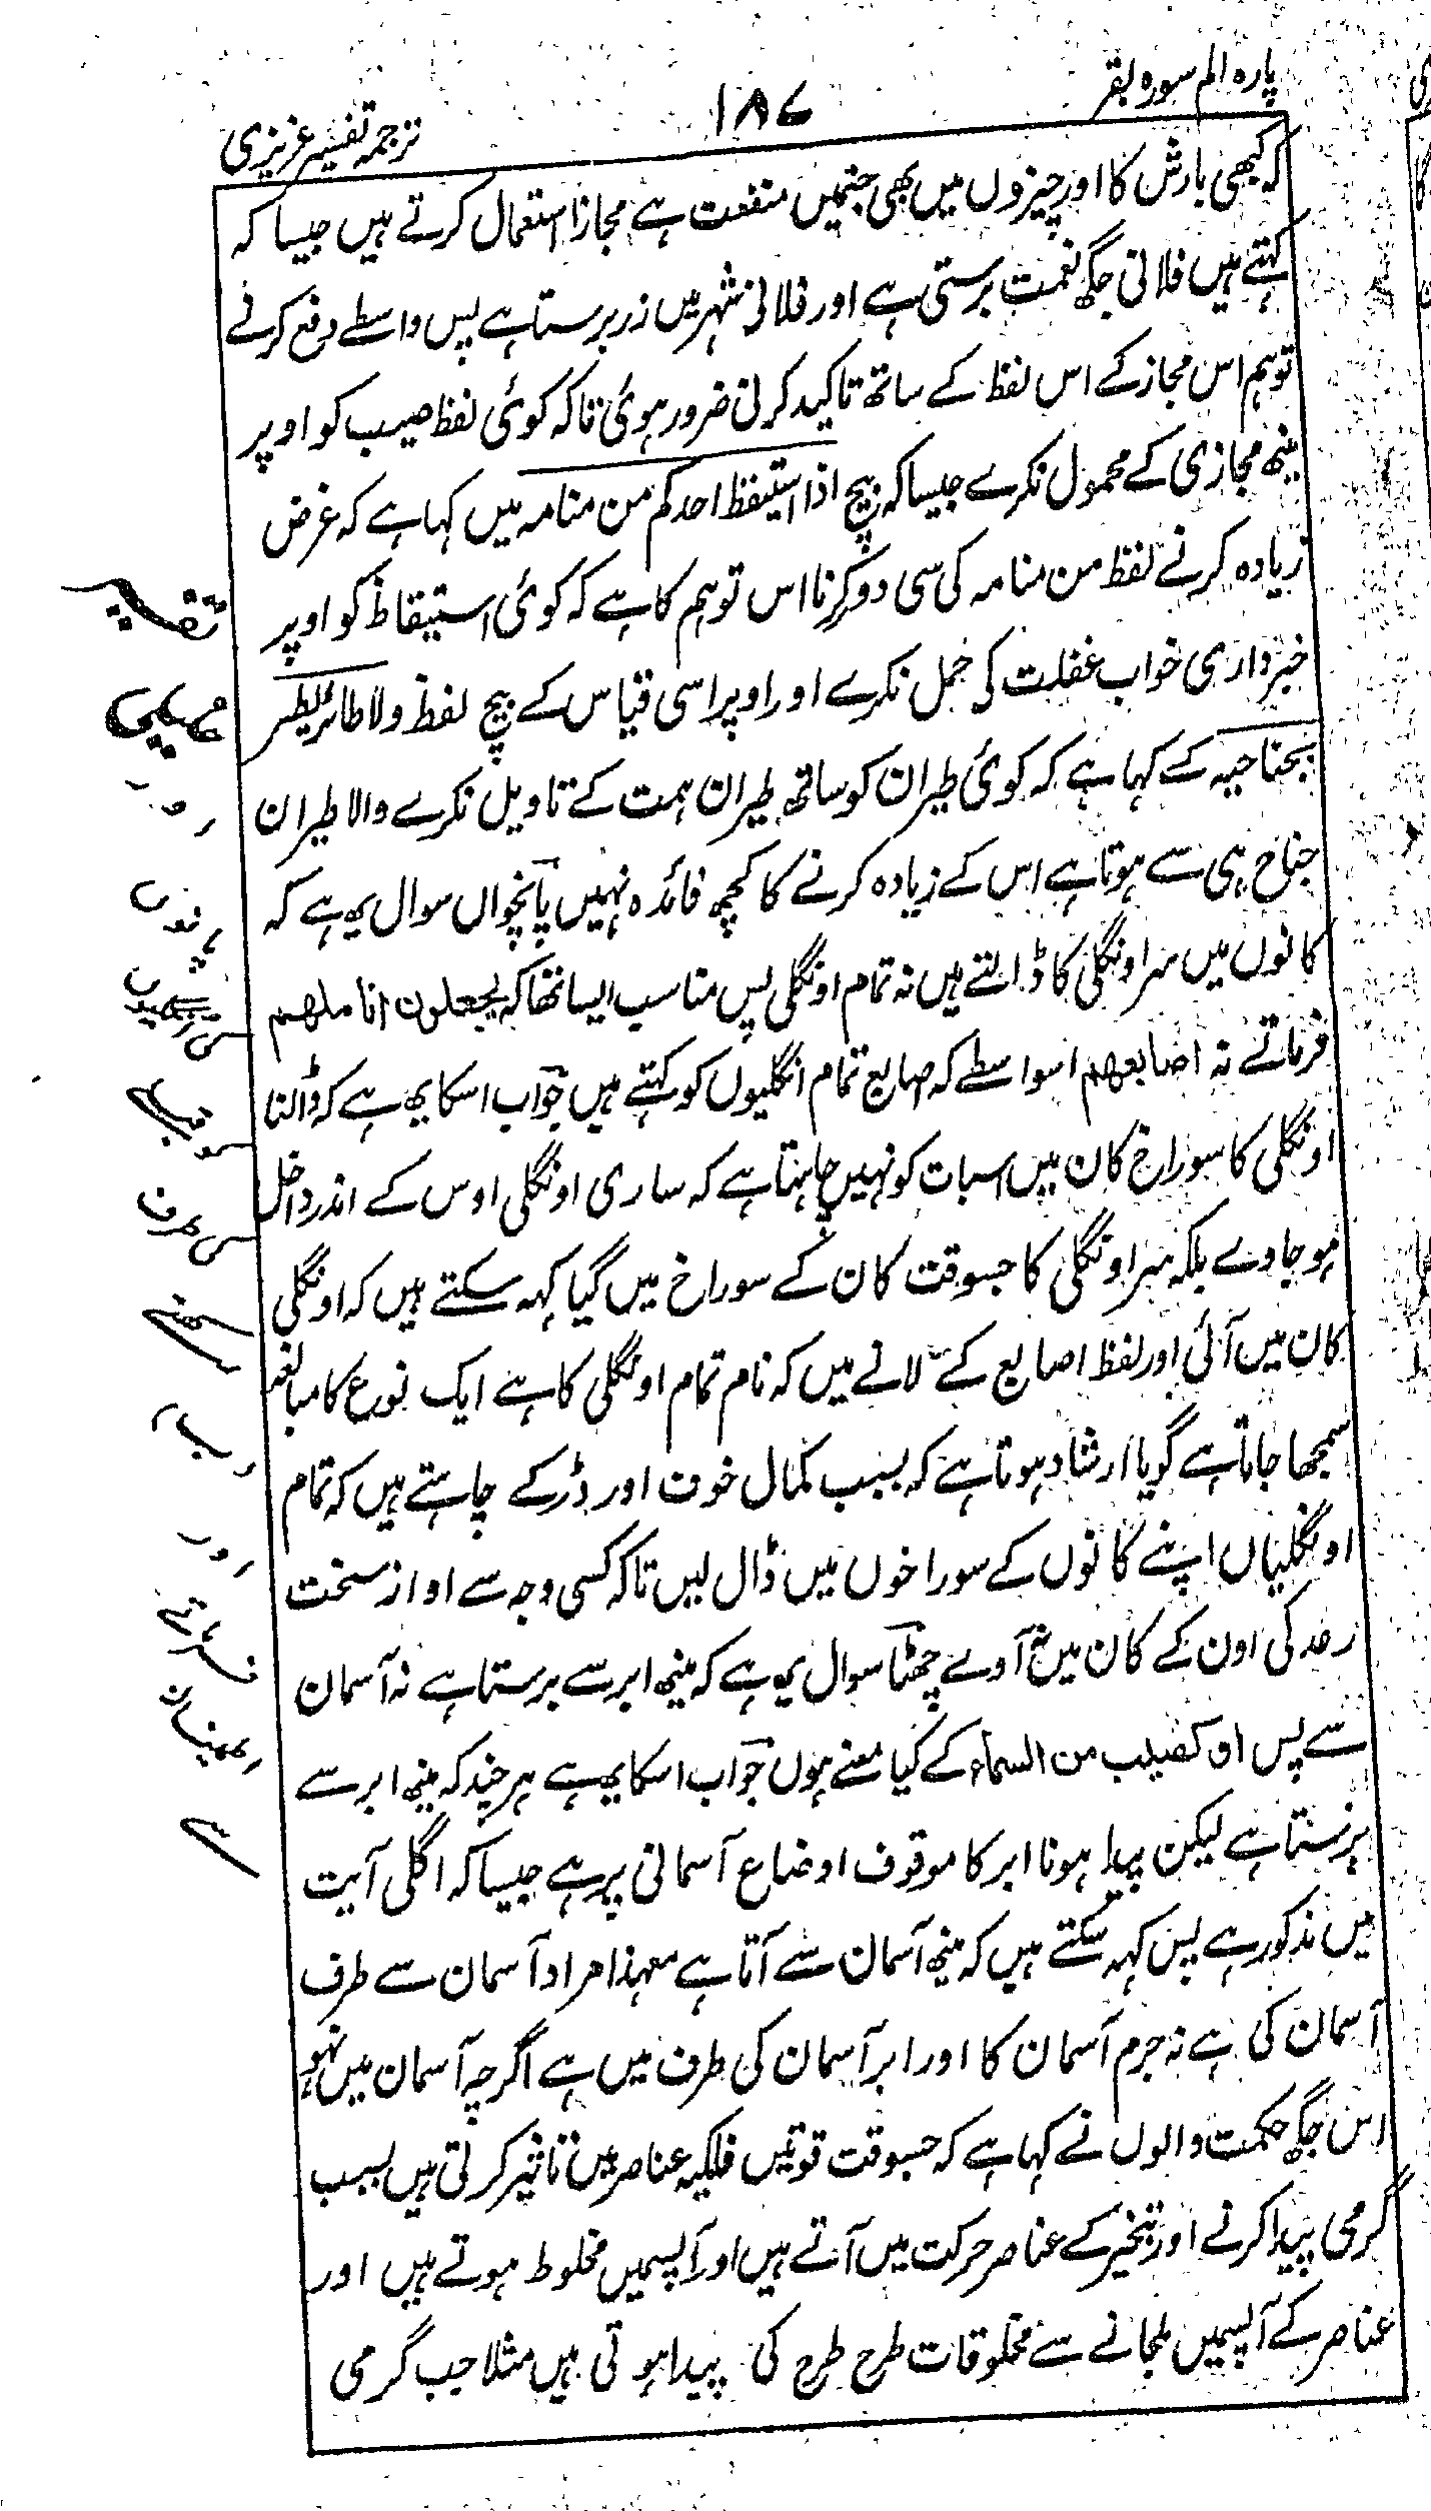 پارہ الم سورہ بقر
۱۸۷
ترجمہ تفسیر عزیزی
کہ کبھی بارش کا اور چیزوں میں بھی جنمیں منفعت ہے مجازا استعمال کرتے ہیں جیسا کہ
کہتے ہیں فلانی جگھ نعمت برستی ہے اور فلانی شہر میں زر برستا ہے پس واسطے دفع کرنے
توہم اس مجاز کے اس لفظ کے ساتھ تاکید کرنی ضرور ہوئی تاکہ کوئی لفظ صیب کو اوپر
مینھ مجازی کے محمول نکرے جیسا کہ بیچ اذا استیقظ احدکم من منامہ میں کہا ہے کہ غرض
زیادہ کرنے لفظ من منامہ کی سی دور کرنا اس توہم کا ہے کہ کوئی استیقاظ کو اوپر
خبرداری خواب غفلت کی حمل نکرے اور اوپر اسی قیاس کے بیچ لفظ ولا طائر یطیر
بجناحیہ کے کہا ہے کہ کوئی طیران کو ساتھ طیران ہمت کے تاویل نکرے والا طیران
جناح ہی سے ہوتا ہے اس کے زیادہ کرنے کا کچھ فائدہ نہیں پانچواں سوال یہ ہے کہ
کانوں میں سر اونگلی کا ڈالتے ہیں نہ تمام اونگلی پس مناسب ایسا تھا کہ یجعلون اناملھم
فرماتے نہ اصابعھم اسواسطے کہ اصابع تمام انگلیوں کو کہتے ہیں جواب اسکا یہ ہے کہ ڈالنا
اونگلی کا سوراخ کان میں اسبات کو نہیں چاہتا ہے کہ ساری اونگلی اوس کے اندر داخل
ہو جاوے بلکہ سر اونگلی کا جسوقت کان کے سوراخ میں گیا کہہ سکتے ہیں کہ اونگلی
کان میں آئی اور لفظ اصابع کے لانے میں کہ نام تمام اونگلی کا ہے ایک نوع کا مبالغہ
سمجھا جاتا ہے گویا ارشاد ہوتا ہے کہ بسبب کمال خوف اور ڈر کے چاہتے ہیں کہ تمام
اونگلیاں اپنے کانوں کے سوراخوں میں ڈال لیں تاکہ کسی وجہ سے اواز سخت
رعد کی اون کے کان میں نہ آوے چھٹا سوال یہ ہے کہ مینھ ابر سے برستا ہے نہ آسمان
سے پس او کصیب من السماء کے کیا معنے ہوں جواب اسکا یہ ہے ہر چند کہ مینھ ابر سے
برستا ہے لیکن پیدا ہونا ابر کا موقوف اوضاع آسمانی پر ہے جیسا کہ اگلی آیت
میں مذکور ہے پس کہہ سکتے ہیں کہ مینھ آسمان سے آتا ہے معہذا مراد آسمان سے طرف
آسمان کی ہے نہ جرم آسمان کا اور ابر آسمان کی طرف میں ہے اگرچہ آسمان میں نہو
اس جگھ حکمت والوں نے کہا ہے کہ جسوقت قوتیں فلکیہ عناصر میں تاثیر کرتی ہیں بسبب
گرمی پیدا کرنے اور تبخیر کے عناصر حرکت میں آتے ہیں اور آپسمیں مخلوط ہوتے ہیں اور
عناصر کے آپسمیں ملجانے سے مخلوقات طرح طرح کی پیدا ہوتی ہیں مثلا جب گرمی